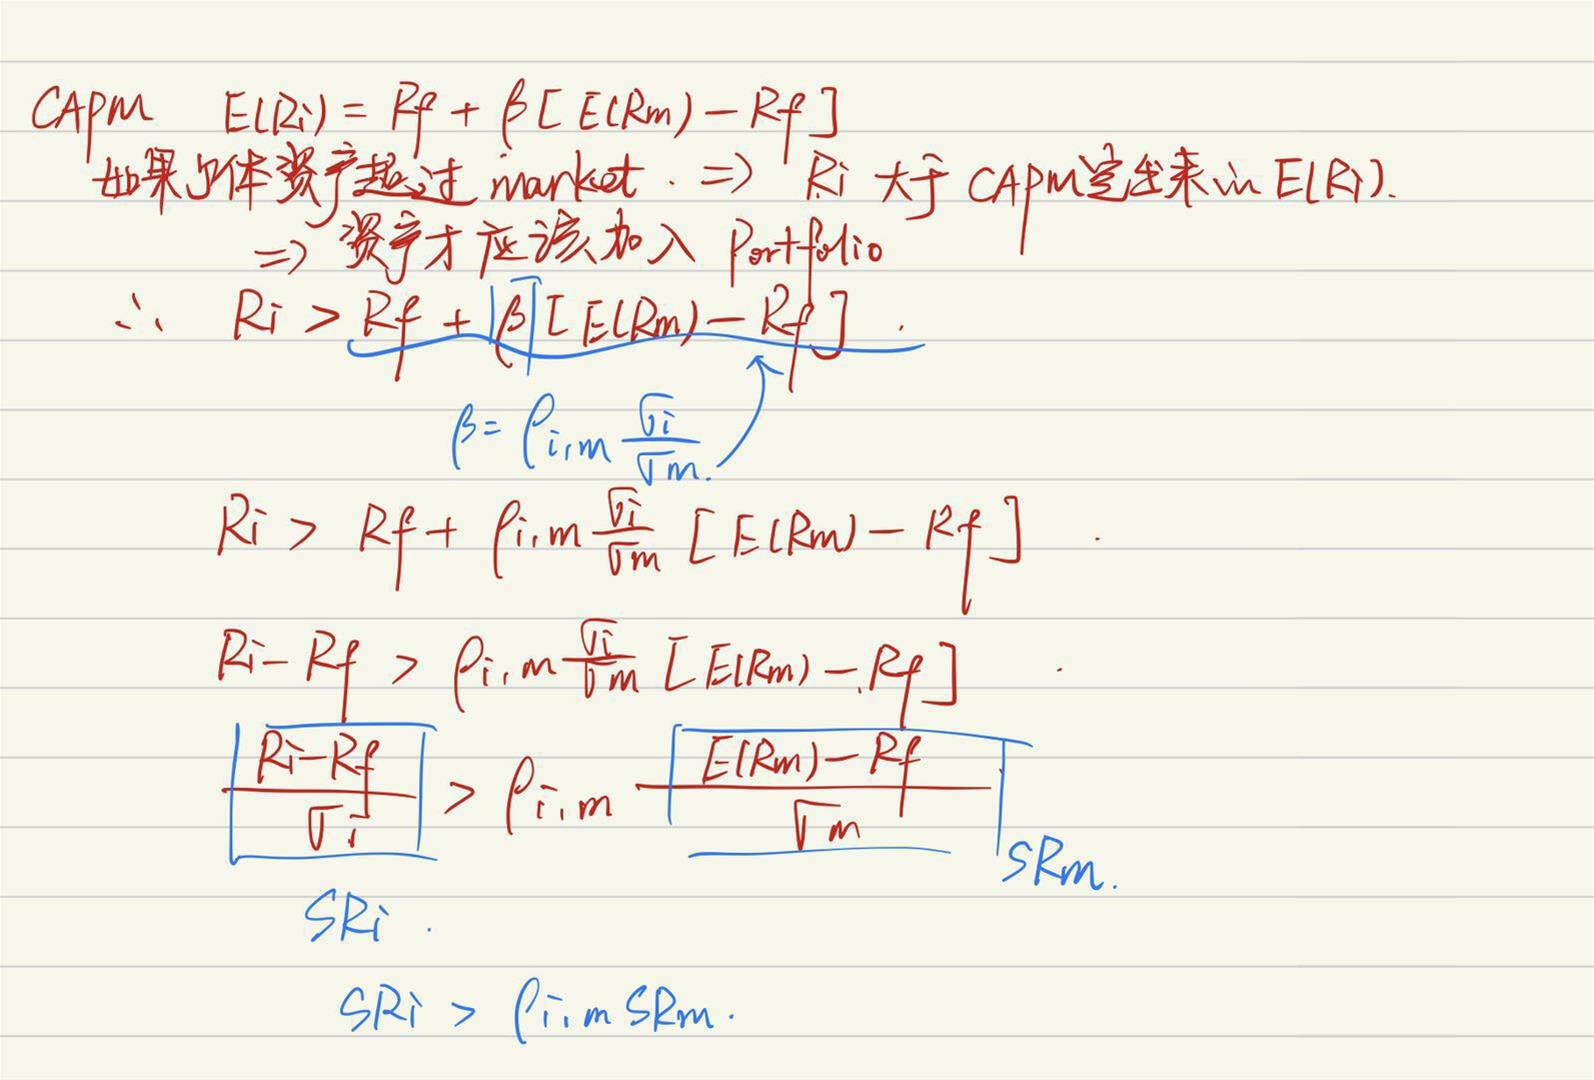 CAPM E(Ri) = Rf + β [ E(Rm) - Rf ]
如果个体资产超过 market. => Ri 大于 CAPM定出来的 E(Ri).
=> 资产才应该加入 Portfolio
∴ Ri > Rf + β [ E(Rm) - Rf ].
β = ρi,m σi/σm.
Ri > Rf + ρi,m σi/σm [ E(Rm) - Rf ].
Ri - Rf > ρi,m σi/σm [ E(Rm) - Rf ].
(Ri - Rf)/σi > ρi,m (E(Rm) - Rf)/σm
SRm.
SRi.
SRi > ρi,m SRm.